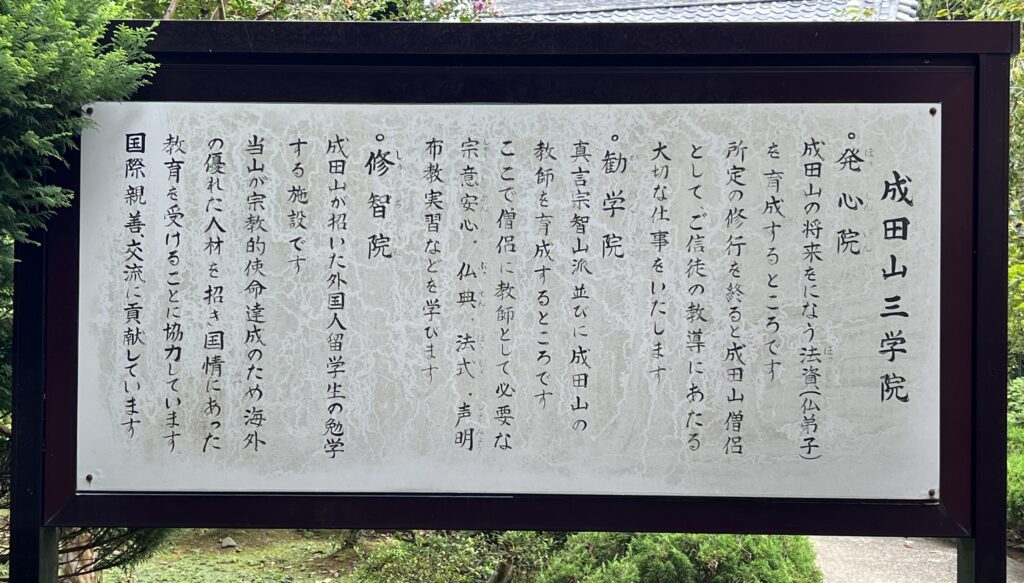 成田山三学院
°発心院
成田山の将来をになう法資(仏弟子)
を育成するところです
所定の修行を終ると成田山僧侶
として、ご信徒の教導にあたる
大切な仕事をいたします
°勧学院
真言宗智山派並びに成田山の
教師を育成するところです
ここで僧侶に教師として必要な
宗意安心．仏典．法式．声明
布教実習などを学びます
°修智院
成田山が招いた外国人留学生の勉学
する施設です
当山が宗教的使命達成のため海外
の優れた人材を招き国情にあった
教育を受けることに協力しています
国際親善交流に貢献しています